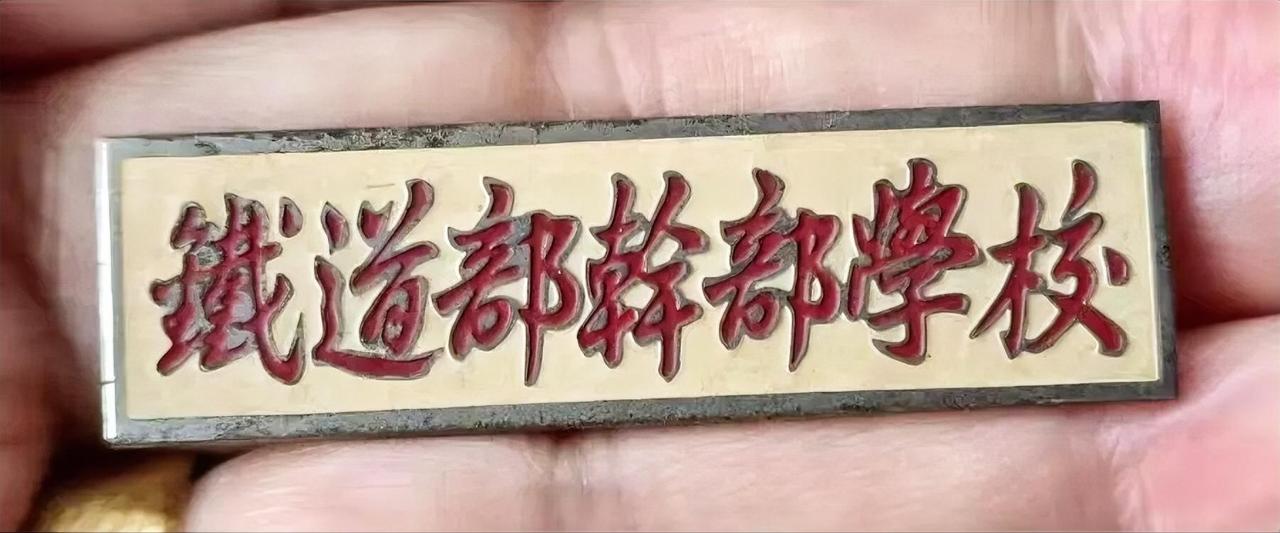 鐵道部幹部學校